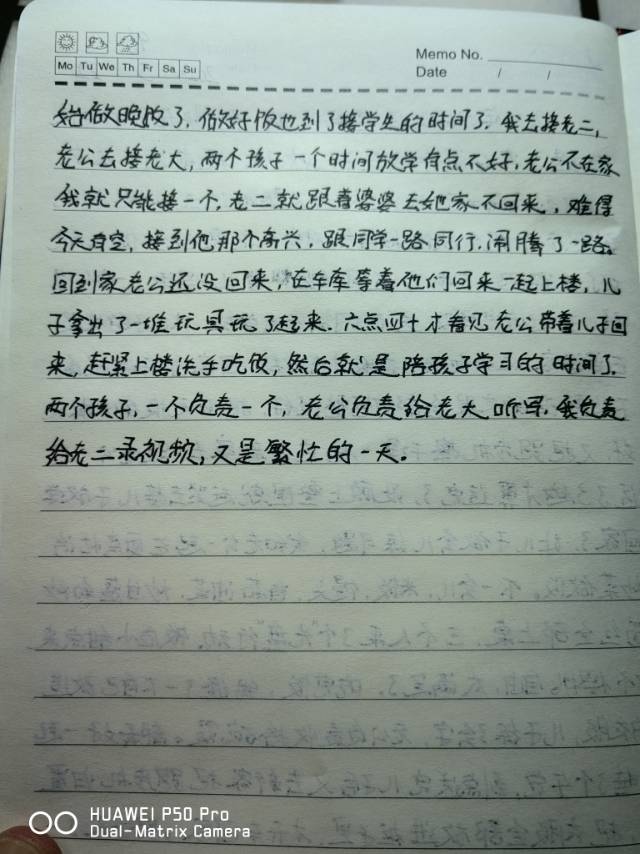 Memo No.
Mo Tu We Th Fr Sa Su
Date / /
始做晚饭了，做好饭也到了接学生的时间了。我去接老二，
老公去接老大，两个孩子一个时间放学有点不好，老公不在家
我就只能接一个，老二就跟着婆婆去她家不回来，难得
今天有空，接到他那个高兴，跟同学一路同行，闹腾了一路。
回到家老公还没回来，在车库等着他们回来一起上楼，儿
子拿出了一堆玩具玩了起来。六点四十才看见老公带着儿子回
来，赶紧上楼洗手吃饭，然后就是陪孩子学习的时间了。
两个孩子，一个负责一个，老公负责给老大听写，我负责
给老二录视频，又是繁忙的一天。
HUAWEI P50 Pro
Dual-Matrix Camera